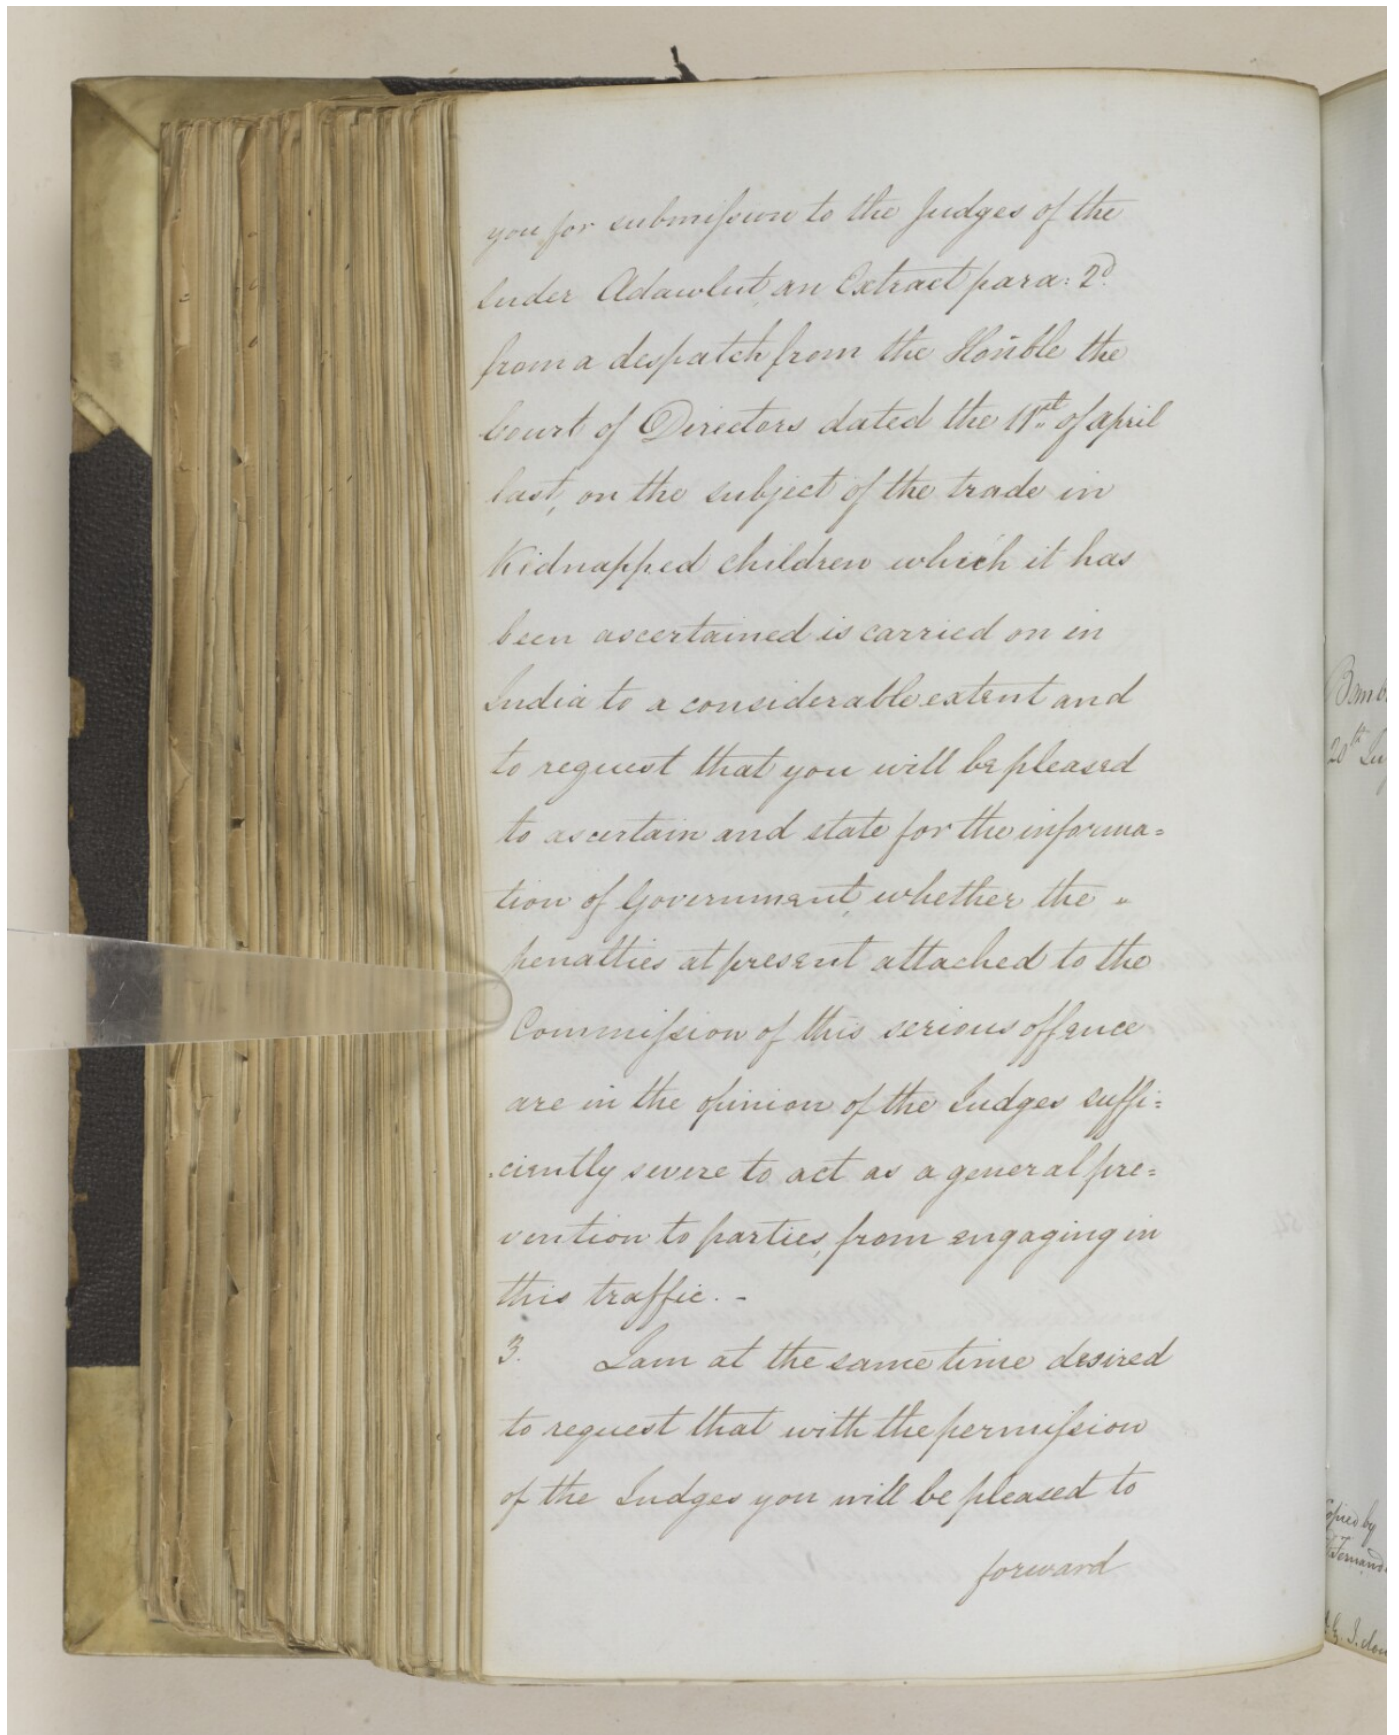 you for submission to the Judges of the
Suder Adawlut, an Extract para: 2d.
from a despatch from the Honble the
Court of Directors dated the 11th of april
last, on the subject of the trade in
Kidnapped children which it has
been ascertained is carried on in
India to a considerable extent and
to request that you will be pleased
to ascertain and state for the informa=
tion of Government, whether the "
penalties at present attached to the
Commission of this serious offence
are in the opinion of the Judges suffi=
ciently severe to act as a general pre=
vention to parties, from engaging in
this traffic. -
3. I am at the same time desired
to request that with the permission
of the Judges you will be pleased to
forward
20th